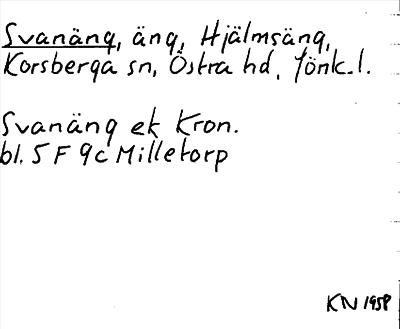 Svanäng, äng, Hjälmsäng,
Korsberga sn, Östra hd, Jönk.l.
Svanäng ek Kron.
bl. 5 F 9c Milletorp
KN 1958